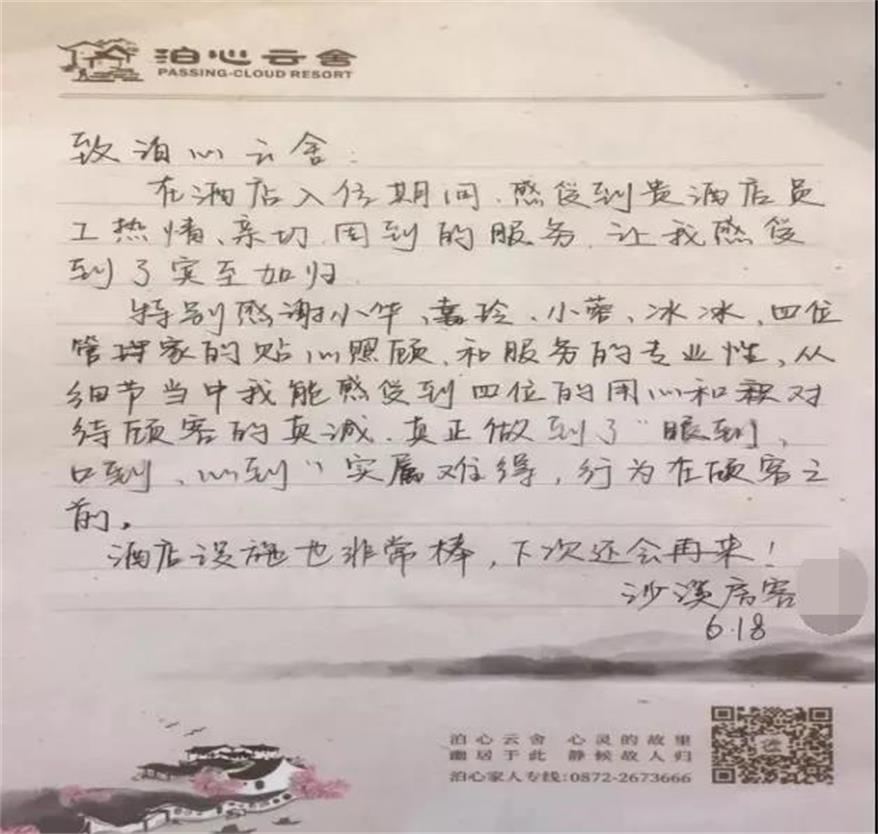 泊心云舍
PASSING-CLOUD RESORT
致泊心云舍:
在酒店入住期间、感受到贵酒店员
工热情、亲切、周到的服务、让我感受
到了宾至如归
特别感谢小华、嘉玲、小蓉、冰冰、四位
管理家的贴心照顾、和服务的专业性、从
细节当中我能感受到四位的用心和积对
待顾客的真诚、真正做到了“眼到、
口到、心到”实属难得,行为在顾客之
前。
酒店设施也非常棒,下次还会再来!
沙溪房客
6.18
泊心云舍 心灵的故里
幽居于此 静候故人归
泊心家人专线:0872-2673666